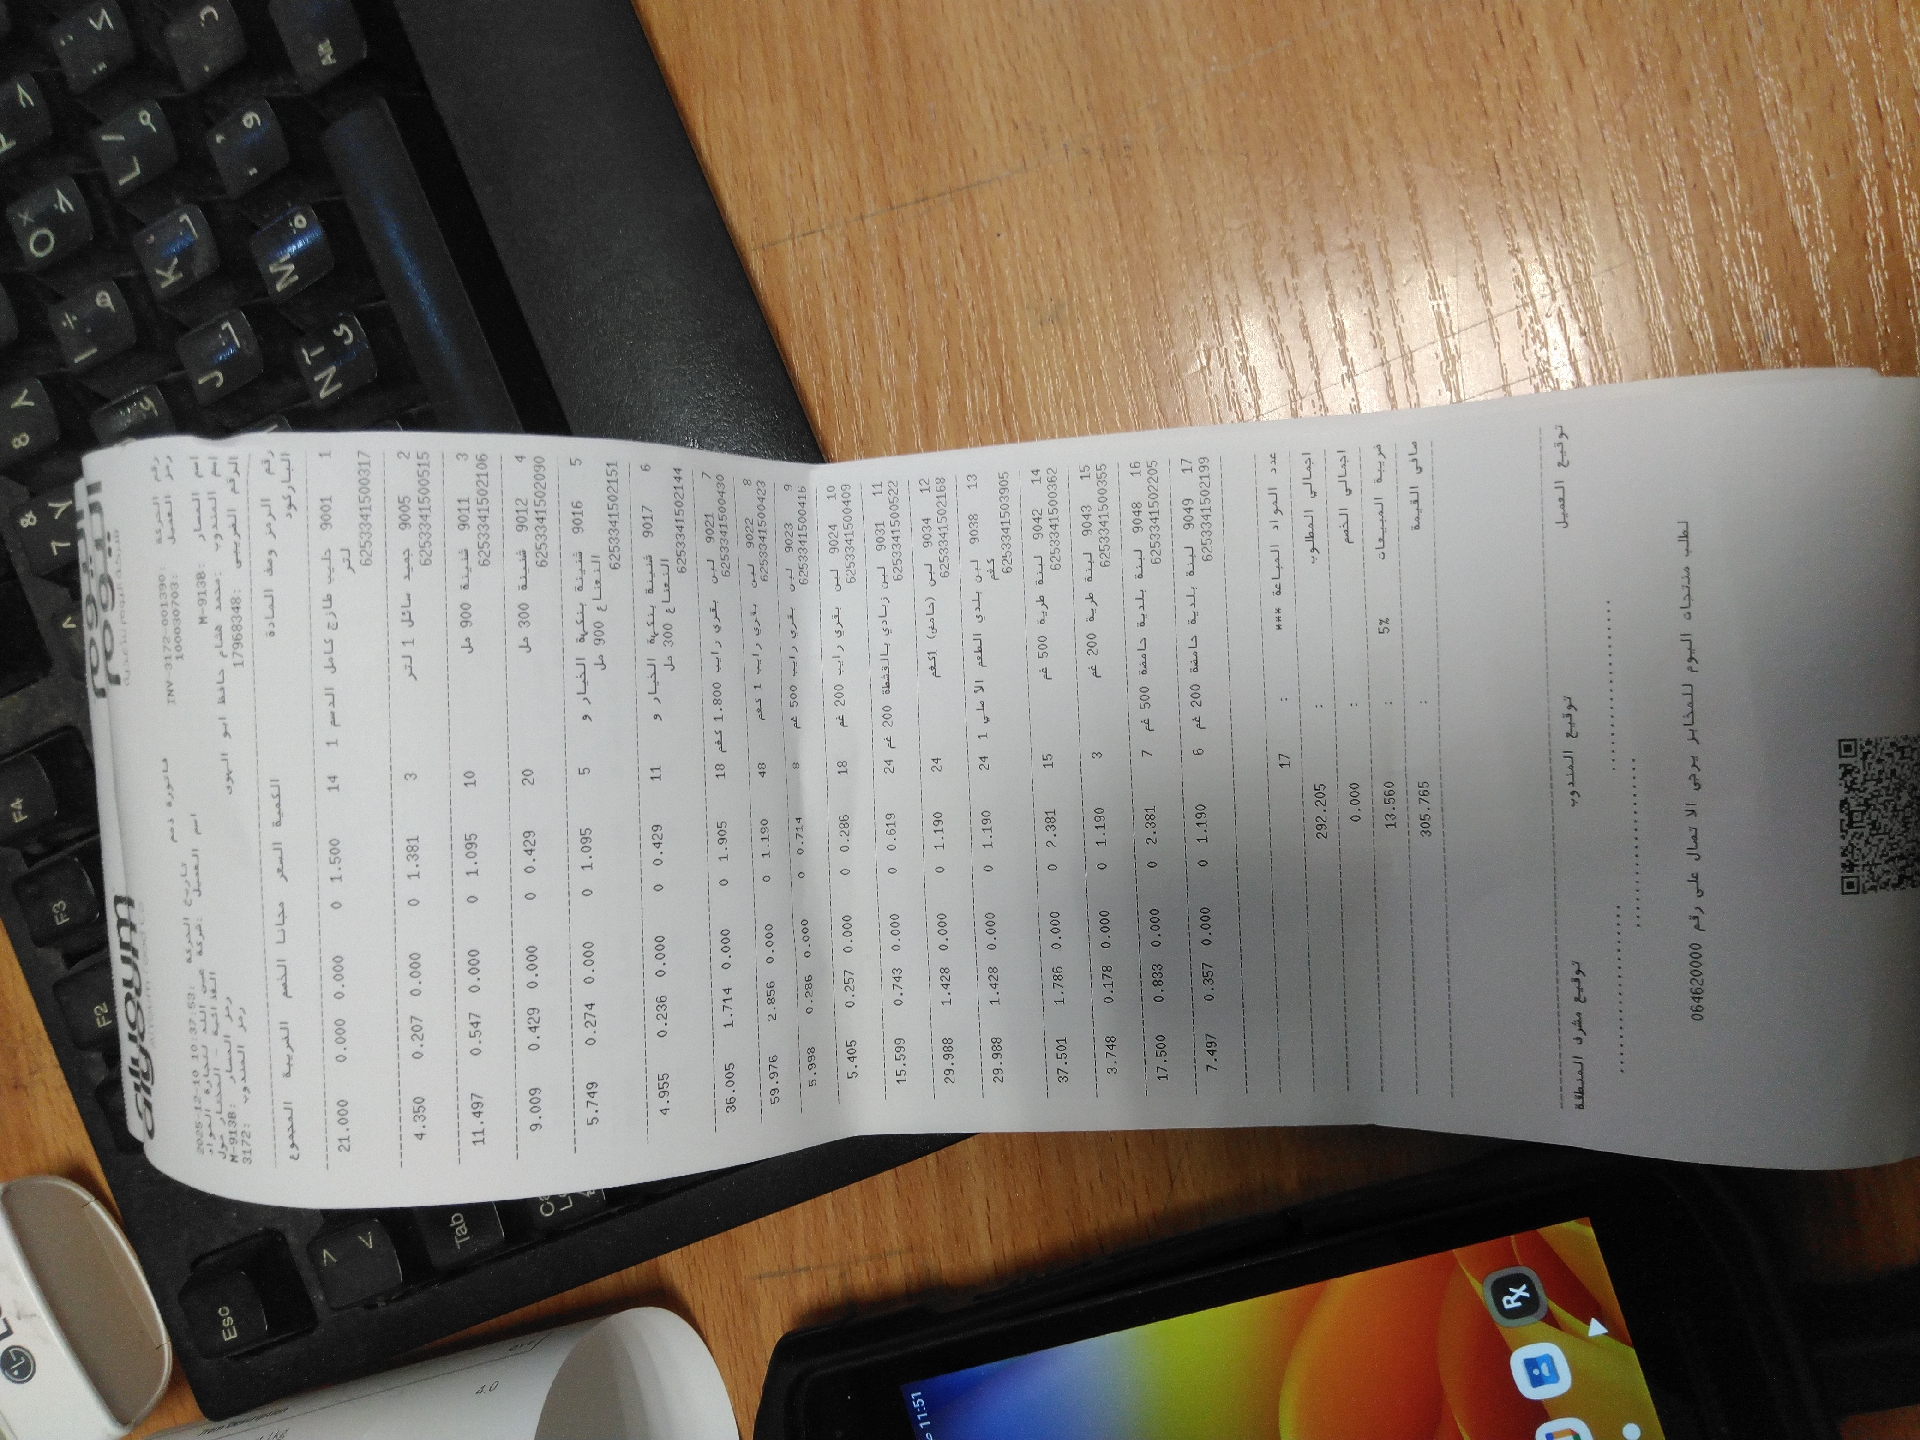 اليوم
Alyoum
رقم الحركة: INV-3172-001390 فاتورة ذمم تاريخ الحركة: 2025-12-10 10:37:53
رمز العميل: 100030703 اسم العميل: شركة
اسم المسار: M-9138 رمز المسار: M-9138
اسم المندوب: محمد هشام حافظ ابو الهوى رمز المندوب: 3172
الرقم الضريبي: 17968348
رقم الرمز وصف المادة الكمية السعر مجانا الخصم الضريبة المجموع
الباركود
1 9001 حليب طازج كامل الدسم 1 14 1.500 0 0.000 0.000 21.000
لتر
6253341500317
2 9005 جميد سائل 1 لتر 3 1.381 0 0.000 0.207 4.350
6253341500515
3 9011 شنينة 900 مل 10 1.095 0 0.000 0.547 11.497
6253341502106
4 9012 شنينة 300 مل 20 0.429 0 0.000 0.429 9.009
6253341502090
5 9016 شنينة بنكهة الخيار و 5 1.095 0 0.000 0.274 5.749
النعناع 900 مل
6253341502151
6 9017 شنينة بنكهة الخيار و 11 0.429 0 0.000 0.236 4.955
النعناع 300 مل
6253341502144
7 9021 لبن بقري رايب 1.800 كغم 18 1.905 0 0.000 1.714 36.005
6253341500430
8 9022 لبن بقري رايب 1 كغم 48 1.190 0 0.000 2.856 59.976
6253341500423
9 9023 لبن بقري رايب 500 غم 8 0.714 0 0.000 0.286 5.998
6253341500416
10 9024 لبن بقري رايب 200 غم 18 0.286 0 0.000 0.257 5.405
6253341500409
11 9031 لبن زبادي بالقشطة 200 غم 24 0.619 0 0.000 0.743 15.599
6253341500522
12 9034 لبن (حامض) 1كغم 24 1.190 0 0.000 1.428 29.988
6253341502168
13 9038 لبن بلدي الطعم الأصلي 1 24 1.190 0 0.000 1.428 29.988
كغم
6253341503905
14 9042 لبنة طرية 500 غم 15 2.381 0 0.000 1.786 37.501
6253341500362
15 9043 لبنة طرية 200 غم 3 1.190 0 0.000 0.178 3.748
6253341500355
16 9048 لبنة بلدية حامضة 500 غم 7 2.381 0 0.000 0.833 17.500
6253341502205
17 9049 لبنة بلدية حامضة 200 غم 6 1.190 0 0.000 0.357 7.497
6253341502199
عدد المواد المباعة *** : 17
اجمالي المطلوب : 292.205
اجمالي الخصم : 0.000
ضريبة المبيعات 5% : 13.560
صافي القيمة : 305.765
توقيع العميل توقيع المندوب توقيع مشرف المنطقة
لطلب منتجات اليوم للمخابز يرجى الاتصال على رقم 064620000
Esc
Tab
F2
F3
F4
11:51
Rx